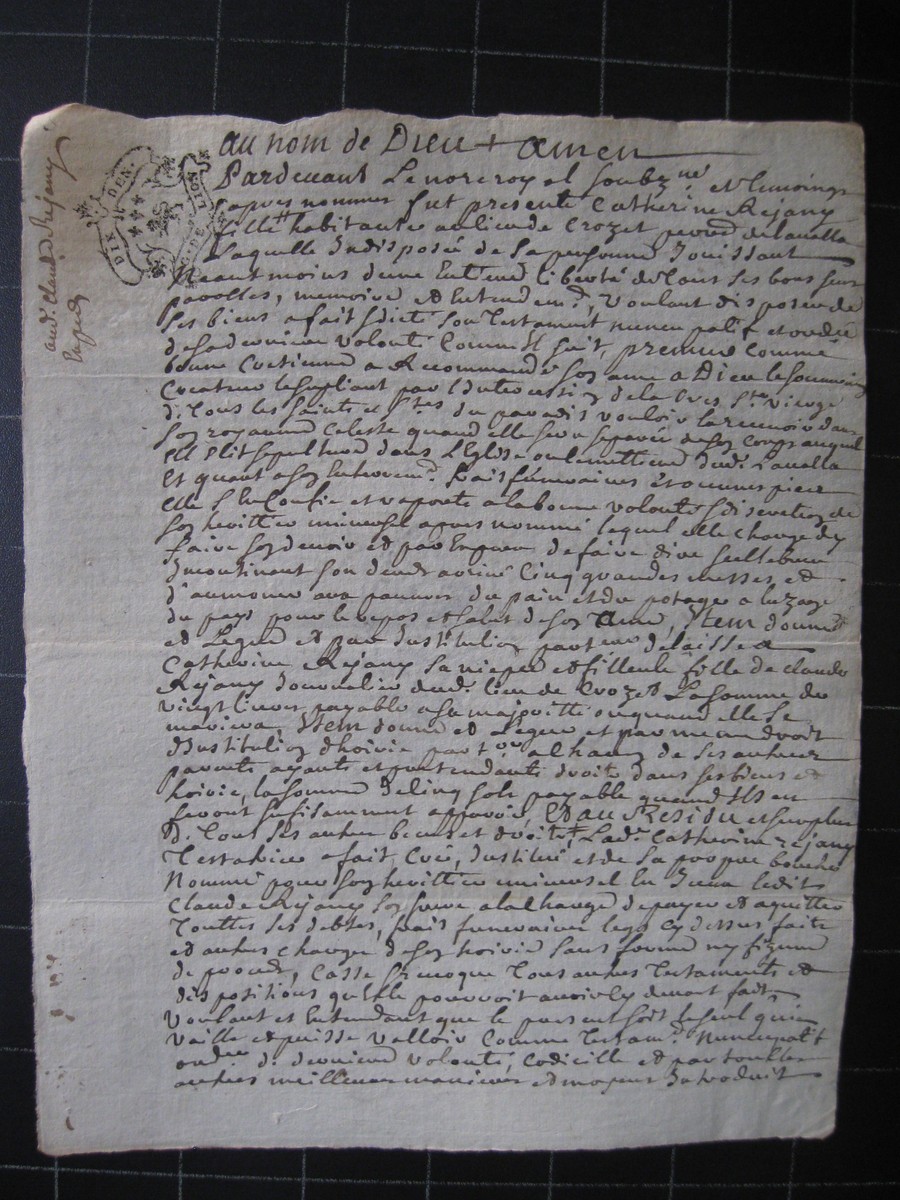 au nom de Dieu + amen
Pardevant Le nore royal soubzne et temoings
apres nommes fut presente Catherine Rejany
fille habitante au lieu de Crozet parroe de lavalla
Laquelle Indisposée de sa personne Jouissant
Neantmoins dune Entiere liberté de tous ses bons sens
parolles, memoire et Entendemt, Voulant disposer de
ses biens a fait & dicté son Testament nuncupatif et ordre
de derniere volonté Comme sil suit, premier comme
bonne Cretienne a Recommandé son ame a Dieu le souverain
Createur le supliant par l'Intercession de la tres Ste vierge
de tous les saints et stes du paradis vouloir la recevoir dans
son royaume Celeste quand elle sera separée de son Corps auquel
Ell Elit sepulture dans L'Eglise ou cimettiere dudt Lavalla
Et quant a son Enterremt frais funeraires et oeuvres pies
elle s'En Confie et raporte a la bonne volonté & discretion de
son herittier universel apres nommé lequel elle charge dy
faire son devoir et par Expres de faire dire & cellebrer
Incontinant son deceds arrivé Cinq grandes messes, et
d'aumoner aux pauvres du pain et du potage a luzage
du pays pour le repos et salut de son ame, Item donne
et Legue et par Institution partere delaisse a
Catherine Rejany sa niepce et filleule fille de claude
Rejany Journalier dudt lieu de Crozet La somme de
vingt livres payable a sa majorité ou quand elle se
mariera Item donne et Legue et par mesme droit
dInstitution dhoirie partre a chacun de ses autres
parents ayants et pretendants droits dans ses biens et
hoirie, la somme de cinq sols payable quand Ils en
feront suffisamment apparoir, Et au Residu et surplus
de Tous ses autres biens et droits, Ladte Catherine rejany
Testatrice a fait, Créé, Institué et de sa propre bouche
Nommé pour son herittier universel
Claude Rejany son frere a la charge de payer et aquitter
Touttes ses debtes, frais funeraires legs cy dessus faits
et autres charges de son hoirie sans forme ny figure
de procès, Casse & revoque Tous autres Testaments et
dispositions quelle pourroit avoir cy devant fait
Voulant et Entendant que le present soit le seul qui
vaille et puisse valloir Comme Testamt Nuncupatif
ordre de derniere volonté, Codicille et par touttes
autres meilleures manieres et moyens
DIX DEN.
G. DE LION
audt claude Rejany
Expedié